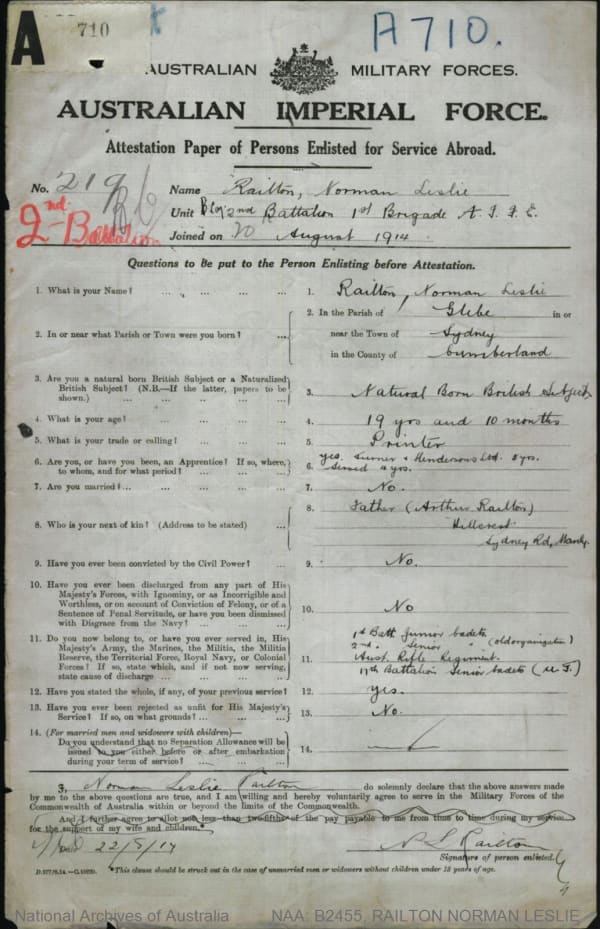 A
710
A710.
AUSTRALIAN MILITARY FORCES.
AUSTRALIAN IMPERIAL FORCE.
Attestation Paper of Persons Enlisted for Service Abroad.
No. 219
2nd Battalion
Name Railton, Norman Leslie
Unit 2nd Battalion 1st Brigade A.I.F.
Joined on 20 August 1914.
Questions to be put to the Person Enlisting before Attestation.
1. What is your Name? ... ... ... ...
1. Railton, Norman Leslie
2. In or near what Parish or Town were you born? ...
2. In the Parish of Glebe in or
near the Town of Sydney
in the County of Cumberland
3. Are you a natural born British Subject or a Naturalized
British Subject? (N.B.—If the latter, papers to be
shown.) ... ... ... ... ...
3. Natural Born British Subject
4. What is your age? ... ... ... ...
4. 19 yrs and 10 months
5. What is your trade or calling? ... ... ...
5. Printer
6. Are you, or have you been, an Apprentice? If so, where,
to whom, and for what period? ... ... ...
6. yes. Turner & Henderson Ltd. 5 yrs.
Served 4 yrs.
7. Are you married? ... ... ... ... ...
7. No.
8. Who is your next of kin? (Address to be stated) ...
8. Father (Arthur Railton)
Hillcrest
Sydney Rd, Manly.
9. Have you ever been convicted by the Civil Power? ...
9. No.
10. Have you ever been discharged from any part of His
Majesty's Forces, with Ignominy, or as Incorrigible and
Worthless, or on account of Conviction of Felony, or of a
Sentence of Penal Servitude, or have you been dismissed
with Disgrace from the Navy? ... ... ...
10. No
11. Do you now belong to, or have you ever served in, His
Majesty's Army, the Marines, the Militia, the Militia
Reserve, the Territorial Force, Royal Navy, or Colonial
Forces? If so, state which, and if not now serving,
state cause of discharge ... ... ... ...
11. 1st Batt Junior Cadets
2nd " Senior " (old organization)
Aust. Rifle Regiment.
Battalion Senior Cadets
12. Have you stated the whole, if any, of your previous service?
12. Yes.
13. Have you ever been rejected as unfit for His Majesty's
Service? If so, on what grounds? ... ... ...
13. No.
14. (For married men and widowers with children)—
Do you understand that no Separation Allowance will be
issued to you either before or after embarkation
during your term of service? ... ... ...
14.
I, Norman Leslie Railton do solemnly declare that the above answers made
by me to the above questions are true, and I am willing and hereby voluntarily agree to serve in the Military Forces of the
Commonwealth of Australia within or beyond the limits of the Commonwealth.
And I further agree to allot not less than two-fifths of the pay payable to me from time to time during my service
for the support of my wife and children.*
Date 22/8/14
N L Railton
Signature of person enlisted.
*This clause should be struck out in the case of unmarried men or widowers without children under 18 years of age.
National Archives of Australia
NAA: B2455, RAILTON NORMAN LESLIE